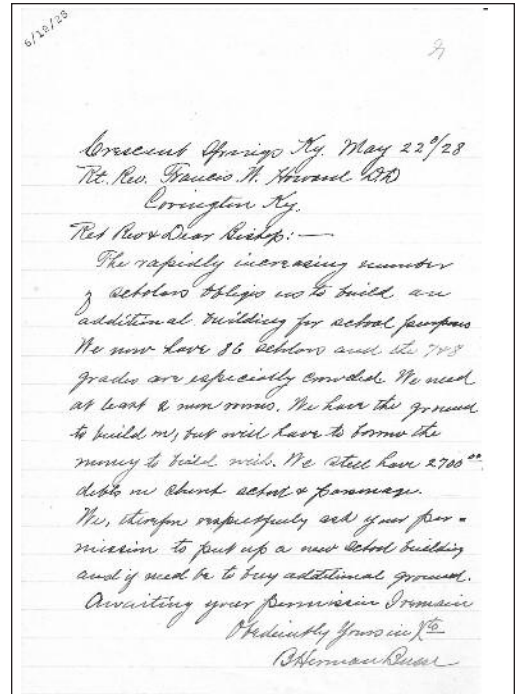 6/12/28
2
Crescent Springs Ky. May 22d/28
Rt. Rev. Francis W. Howard DD
Covington Ky.
Ret Rev & Dear Bishop: —
The rapidly increasing number
of scholars obliges us to build an
additional building for school purposes
We now have 86 scholars and the 7&8
grades are especially crowded. We need
at least 2 more rooms. We have the ground
to build on, but will have to borrow the
money to build with. We still have 2700 00
debts on church school & parsonage.
We, therefore respectfully ask your per-
mission to put up a new school building
and if need be to buy additional ground.
Awaiting your permission I remain
Obediently Yours in Xto
B Herman Busse